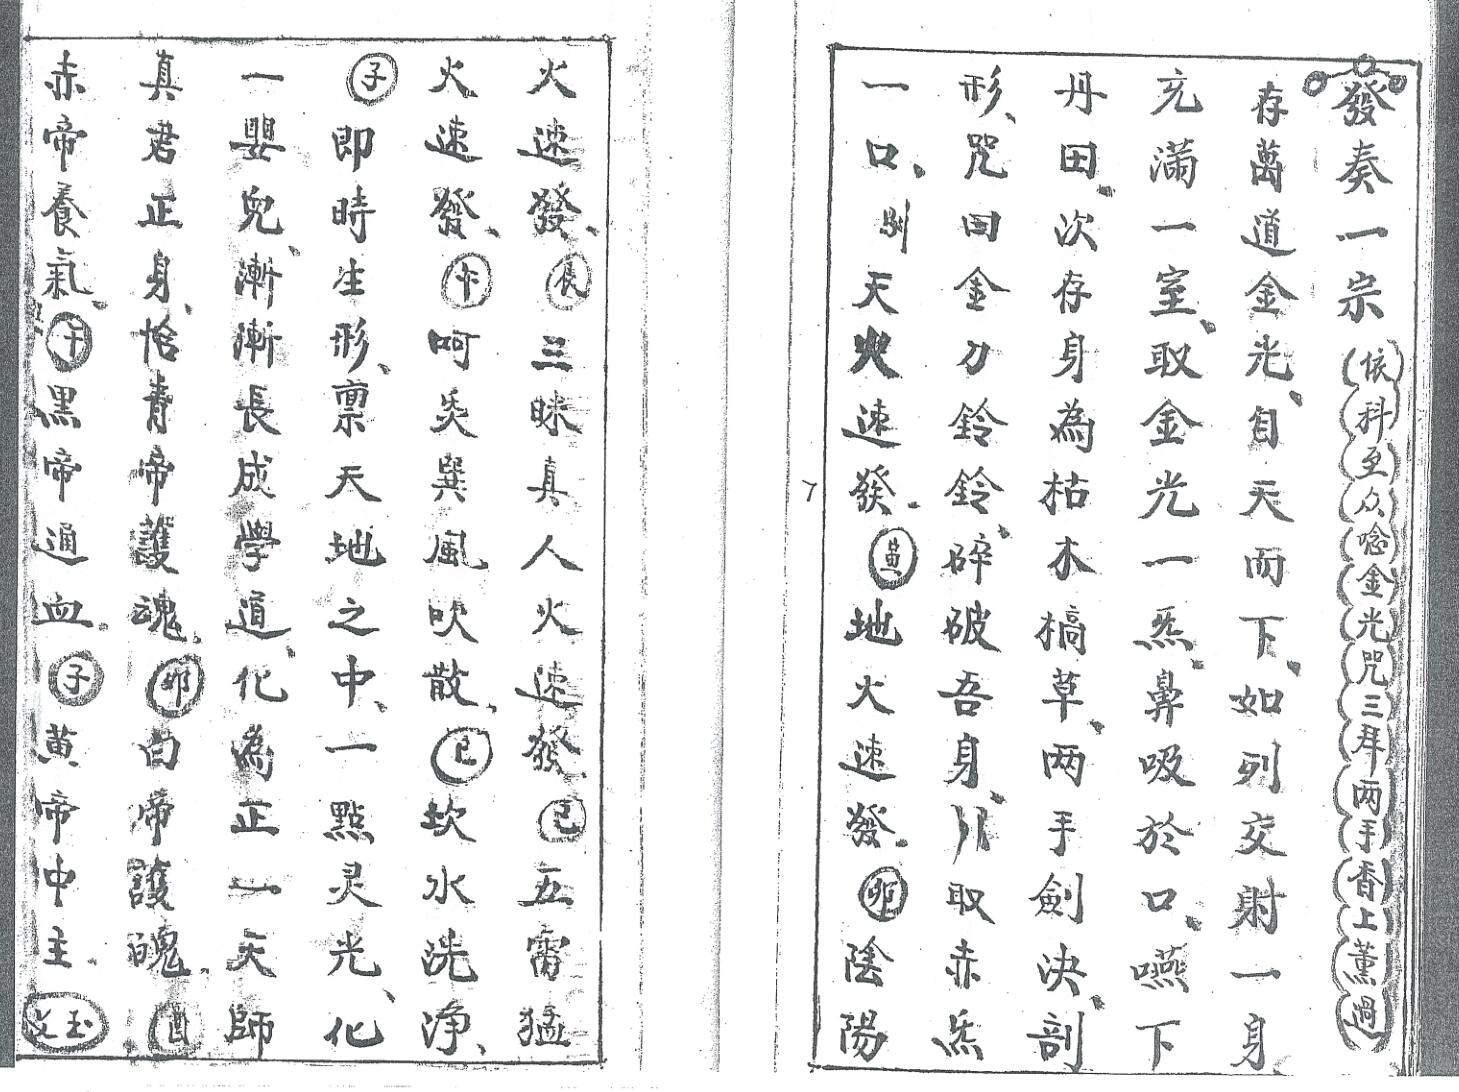 發奏一宗(依科至众唸金光咒三拜两手香上薰過)
存萬道金光、自天而下、如列交射一身
充滿一室、取金光一炁、鼻吸於口、嚥下
丹田、次存身為枯木槁草、两手劍決、剖
形、咒曰金刀鈴鈴、碎破吾身、取赤炁
一口、天火速發、地火速發、卯陰陽
火速發、辰三昧真人火速發、巳五雷猛
火速發、午呵炎巽風吹散、巳坎水洗淨、
子即時生形、禀天地之中、一點灵光、化
一嬰兒、漸漸長成學道、化為正一天師
真君正身、恰青帝護魂、卯白帝護魄、酉
赤帝養氣、午黑帝通血、子黃帝中主、玉文